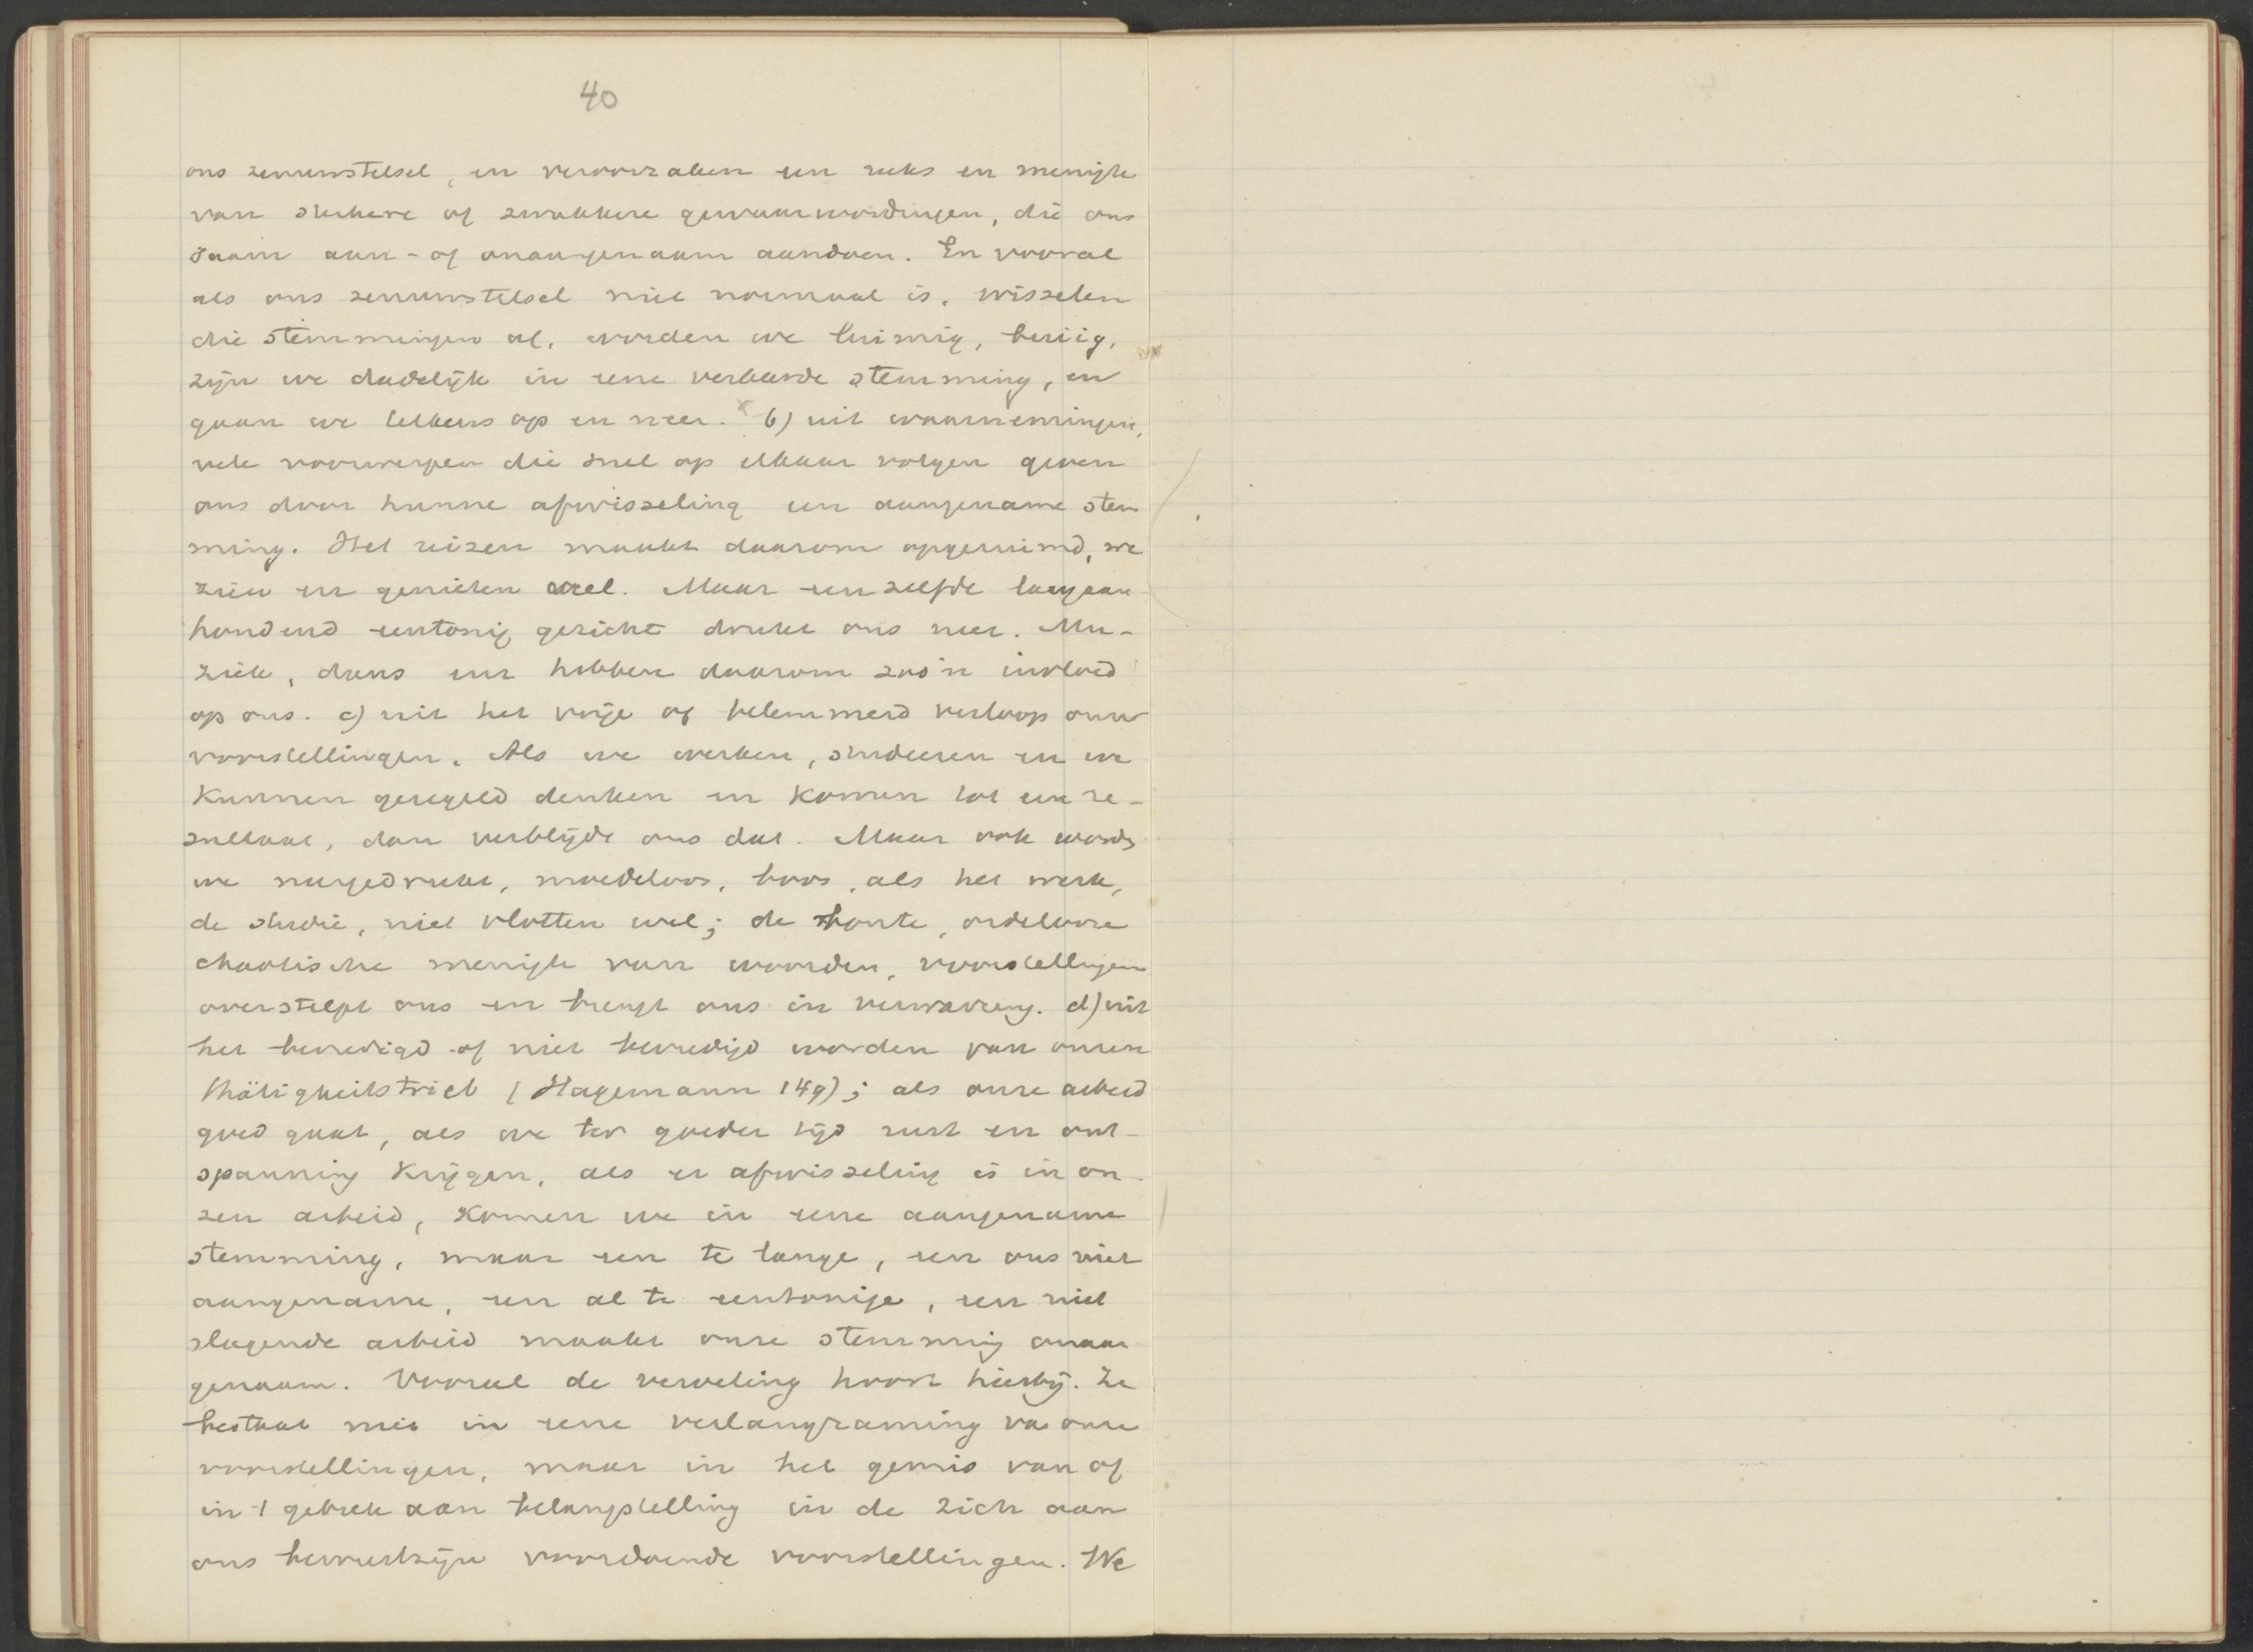 40
ons zenuwstelsel, en veroorzaken een reeks en menigte
van sterkere of zwakkere gewaarwordingen, die ons
saam aan- of onaangenaam aandoen. En vooral
als ons zenuwstelsel niet normaal is, wisselen
die stemmingen af, worden we luimig,
zijn we dadelijk in eene verkeerde stemming, en
gaan we telkens op en neer. x b) uit waarnemingen,
vele voorwerpen die snel op elkaar volgen geven
ons door hunne afwisseling een aangename stem
ming. Het reizen maakt daarom opgeruimd, we
zien en genieten veel. Maar een zelfde langaan
houdend eentonig gezicht drukt ons neer. Mu-
ziek, dans enz hebben daarom zoo'n invloed
op ons. c) uit het vrije of belemmerd verloop onzer
voorstellingen. Als we werken, studeeren en we
kunnen geregeld denken en komen tot een re-
sultaat, dan verblijdt ons dat. Maar ook worden
we neergedrukt, moedeloos, boos, als het werk,
de studie, niet vlotten wil; de bonte, ordelooze
chaotische menigte van woorden, voorstellingen
overstelpt ons en brengt ons in verwarring. d) uit
het bevredigd of niet bevredigd worden van onzen
Thätigkeitstrieb (Hagemann 149); als onze arbeid
goed gaat, als we ter goeder tijd rust en ont-
spanning krijgen, als er afwisseling is in on-
zen arbeid, komen we in eene aangename
stemming, maar een te lange, een ons niet
aangename, een al te eentonige, een niet
slagende arbeid maakt onze stemming onaan
genaam. Vooral de verveling hoort hierbij. Ze
bestaat niet in eene verlangzaming van onze
voorstellingen, maar in het gemis van of
in 't gebrek aan belangstelling in de zich aan
ons bewustzijn voordoende voorstellingen. We